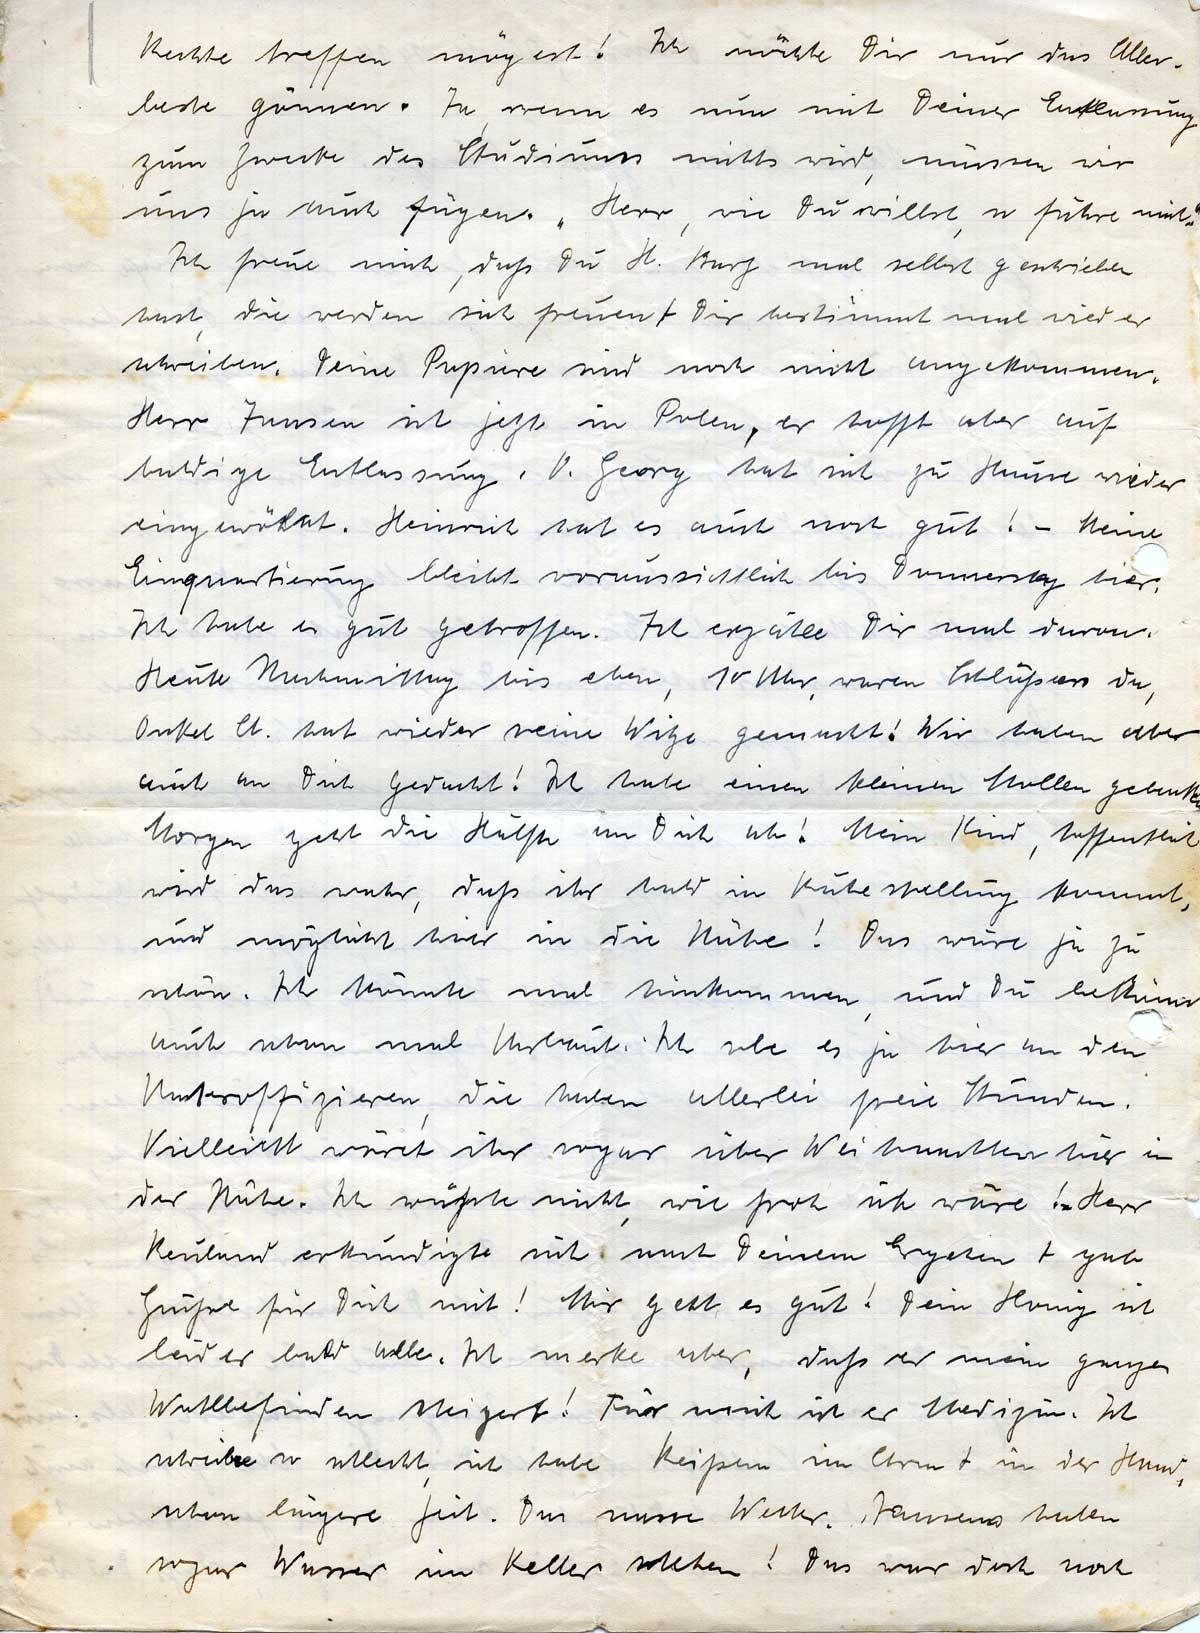 Rechte treffen mögest! Ich möchte Dir nur das Aller-
beste gönnen. Ja, wenn es nun mit Deiner Entlassung
zum Zwecke des Studiums nichts wird, müssen wir
uns ja auch fügen. „Herr, wie Du willst, so führe mich."
Ich freue mich, daß Du H. Burg mal selbst geschrieben
hast, die werden sich freuen + Dir bestimmt mal wieder
schreiben. Deine Papiere sind noch nicht angekommen.
Herr Jansen ist jetzt in Polen, er hofft aber auf
baldige Entlassung. O. Georg hat sich zu Hause wieder
eingewöhnt. Heinrich hat es auch noch gut! – Meine
Einquartierung bleibt voraussichtlich bis Donnerstag hier.
Ich habe es gut getroffen. Ich erzähle Dir mal davon.
Heute Nachmittag bis eben, 10 Uhr, waren Schlüpers da,
Onkel A. hat wieder seine Witze gemacht! Wir haben aber
auch an Dich gedacht! Ich habe einen kleinen Stollen gebacken
Morgen geht die Hälfte an Dich ab! Mein Kind, hoffentlich
wird das wahr, daß ihr bald in Ruhestellung kommt,
und möglichst hier in die Nähe! Das wäre ja zu
schön. Ich könnte mal hinkommen, und Du bekämst
auch schon mal Urlaub. Ich sehe es ja hier an den
Unteroffizieren, die haben allerlei freie Stunden.
Vielleicht wäret ihr sogar über Weihnachten hier in
der Nähe. Ich wüßte nicht, wie froh ich wäre! – Herr
Reuland erkundigte sich nach Deinem Ergehen + gab
Grüße für Dich mit! Mir geht es gut! Dein Honig ist
leider bald alle. Ich merke aber, daß er mein ganzes
Wohlbefinden steigert! Für mich ist er Medizin. Ich
schreibe so schlecht, ich habe Reißen im Arm + in der Hand,
schon längere Zeit. Das nasse Wetter. Jansens haben
sogar Wasser im Keller stehen! Das war doch noch